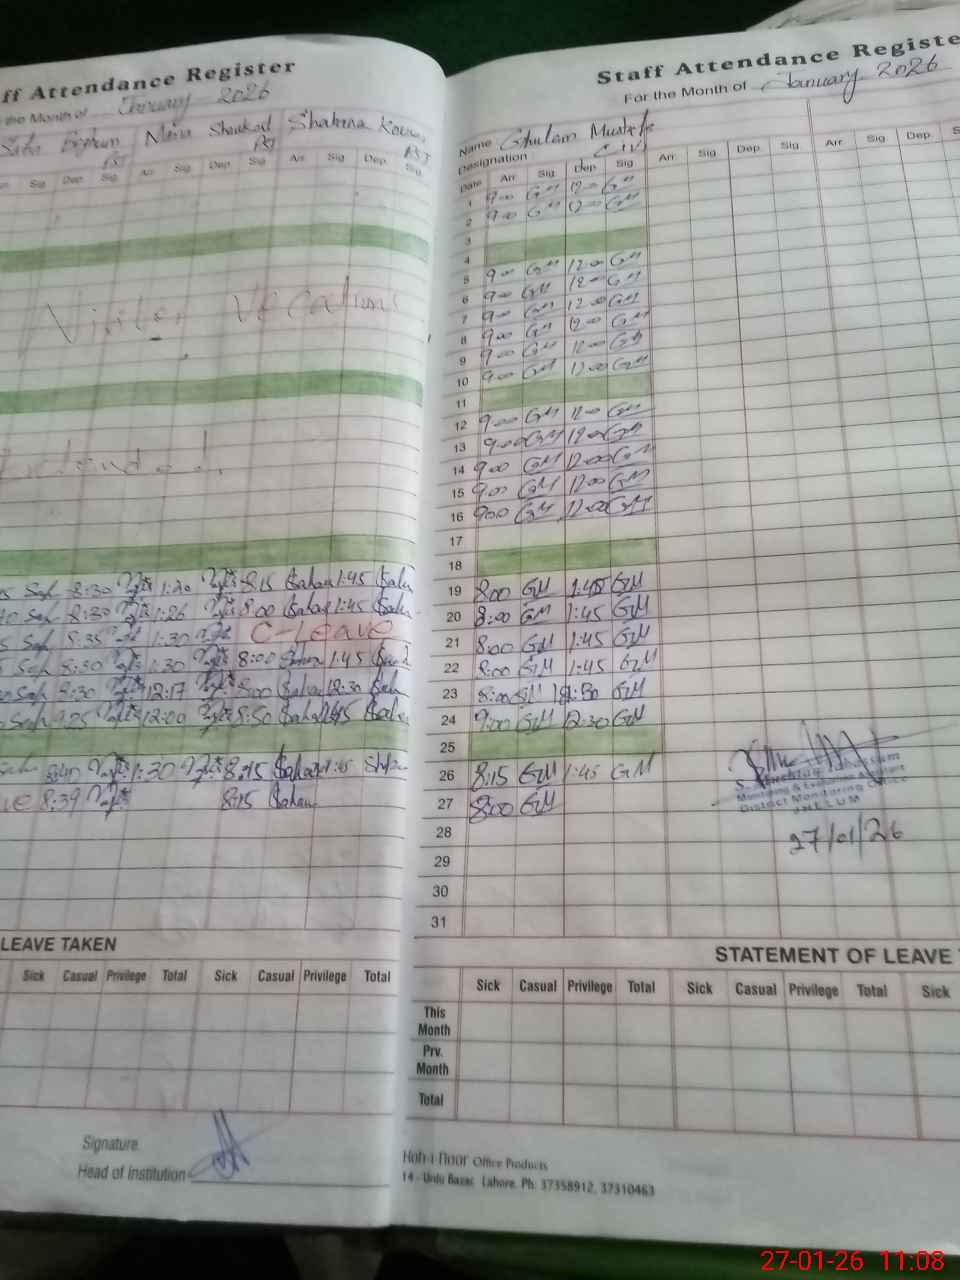 ff Attendance Register
the Month of January 2026
Naila Shaukat Shabana Kousar
PST PST PST
Sig Dep. Sig Arr. Sig Dep. Sig Arr. Sig Dep. Sig
Winter Vacations
Extended.
Saf 8:30 1:20 8:15 Shaban 1:45 Shaban
Saf 8:30 1:26 8:00 Shaban 1:45 Shaban
5 Saf 8:35 1:30 C-Leave
Saf 8:30 1:30 8:00 Shaban 1:45
Saf 8:30 12:17 8:00 Shaban 12:30
Saf 9:25 12:00 8:50
8:40 1:30 8:15 1:45
8:39 8:15 Shaban
LEAVE TAKEN
Sick Casual Privilege Total Sick Casual Privilege Total
Signature
Head of Institution
Staff Attendance Registe
For the Month of January 2026
Name Ghulam Mustafa
Designation C-IV
Date Arr. Sig Dep. Sig Arr. Sig Dep. Sig Arr. Sig Dep. S
1 9:00 GM 12:00 GM
2 9:00 GM 12:00 GM
3
4
5 9:00 GM 12:00 GM
6 9:00 GM 12:00 GM
7 9:00 GM 12:00 GM
8 9:00 GM 12:00 GM
9 9:00 GM 12:00 GM
10 9:00 GM 12:00 GM
11
12 9:00 GM 12:00 GM
13 9:00 GM 12:00 GM
14 9:00 GM 12:00 GM
15 9:00 GM 12:00 GM
16 9:00 GM 12:00 GM
17
18
19 8:00 GM 1:45 GM
20 8:00 GM 1:45 GM
21 8:00 GM 1:45 GM
22 8:00 GM 1:45 GM
23 8:00 GM 12:30 GM
24 9:00 GM 12:30 GM
25
26 8:15 GM 1:45 GM
27 8:00 GM
28
29
30
31
Monitoring & Evaluation Assistant
District Monitoring Office
JHELUM
27/01/26
STATEMENT OF LEAVE T
Sick Casual Privilege Total Sick Casual Privilege Total Sick
This Month
Prv. Month
Total
Koh-i-Noor Office Products
14 - Urdu Bazar, Lahore. Ph: 37358912, 37310463
27-01-26 11:08